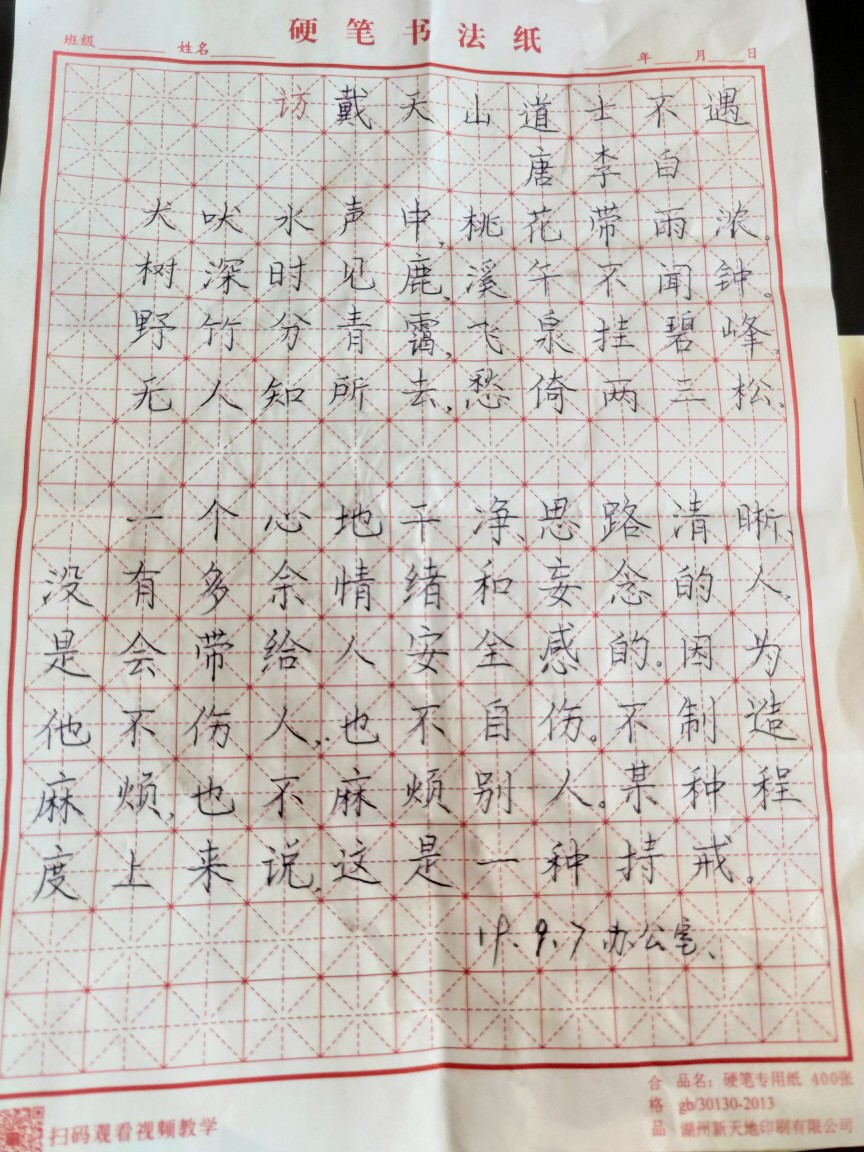 硬笔书法纸
班级 姓名 年 月 日
访戴天山道士不遇
唐李白
犬吠水声中,桃花带雨浓。
树深时见鹿,溪午不闻钟。
野竹分青霭,飞泉挂碧峰,
无人知所去,愁倚两三松。
一个心地干净、思路清晰、
没有多余情绪和妄念的人,
是会带给人安全感的。因为
他不伤人,也不自伤。不制造
麻烦,也不麻烦别人。某种程
度上来说,这是一种持戒。
19.9.7办公室、
合格品
品名：硬笔专用纸 400张
gb/30130-2013
湖州新天地印刷有限公司
扫码观看视频教学